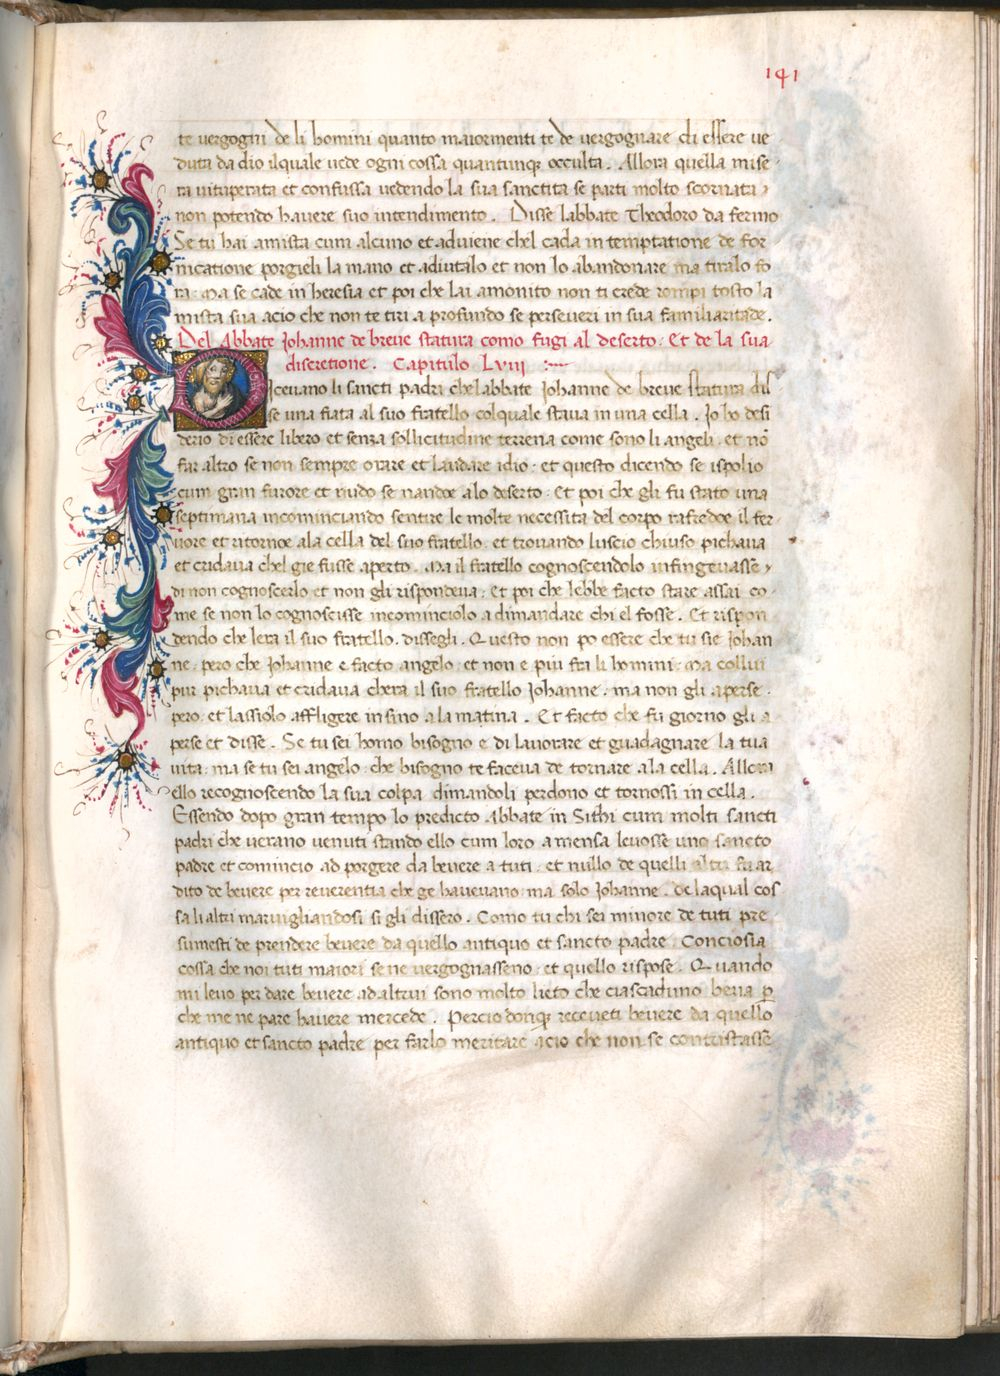 141
te vergogni de li homini quanto maiormenti te de vergognare di essere ue
duta da dio ilquale uede ogni cossa quantunq occulta . Allora quella mise
ra uituperata et confussa uedendo la sua sanctita se parti molto scornata
non potendo hauere suo intendimento . Disse labbate Theodoro da fermo
Se tu hai amista cum alcuno et aduiene chel cada in temptatione de for
nicatione porgieli la mano et adiutalo et non lo abandonare ma tiralo fo
ra : Ma se cade in heresia et poi che lai amonito non ti crede rompi tosto la
mista sua acio che non te tiri a profundo se perseueri in sua familiaritade .
Del Abbate Iohanne de breue statura como fugi al deserto . Et de la sua
discretione . Capitulo Lviii :
Diceuano li sancti padri che labbate Iohanne de breue statura dis
se una fiata al suo fratello colquale staua in una cella . Io ho desi
derio di essere libero et senza sollicitudine terrena come sono li angeli . et nō
far altro se non sempre orare et laudare idio : et questo dicendo se ispolio
cum gran furore et nudo se nandoe alo deserto . Et poi che gli fu stato una
septimana incominciando sentire le molte necessita del corpo rafredoe il fer
uore et ritornoe ala cella del suo fratello . et trouando luscio chiuso pichaua
et cridaua chel gie fusse aperto . Ma il fratello cognoscendolo infingeuasse
di non cognoscerlo et non gli rispondeua . Et poi che lebbe facto stare assai co
me se non lo cognoscisse incominciolo a dimandare chi el fosse . Et rispon
dendo che lera il suo fratello . dissegli . Questo non po essere che tu sie Iohan
ne . pero che Iohanne e facto angelo . et non e piu fra li homini . Ma collui
pur pichaua et cridaua chera il suo fratello Iohanne . ma non gli aperse .
pero . et lassiolo affligere in fino a la matina . Et facto che fu giorno gli a
perse et disse . Se tu sei homo bisogno e di lauorare et guadagnare la tua
uita . ma se tu sei angelo . che bisogno te faceua de tornare ala cella . Allora
ello recognoscendo la sua colpa dimandoli perdono et tornossi in cella .
Essendo dopo gran tempo lo predicto Abbate in Sithi cum molti sancti
padri che uerano uenuti stando ello cum loro a mensa leuosse uno sancto
padre et comincio ad porgere da beuere a tuti . et nullo de quelli altri fu ar
dito de beuere per reuerentia che ge haueuano ma solo Iohanne . de laqual cos
sa li altri marauigliandosi si gli dissero . Como tu chi sei minore de tuti pre
sumesti de prendere beuere da quello antiquo et sancto padre . Conciosia
cossa che noi tuti maiori se ne vergognasseno . et quello rispose . Quando
mi leuo per dare beuere ad altrui sono molto lieto che ciascaduno beua p
che me ne pare hauere mercede . Percio donq receueti beuere da quello
antiquo et sancto padre per farlo meritare acio che non se contristasse